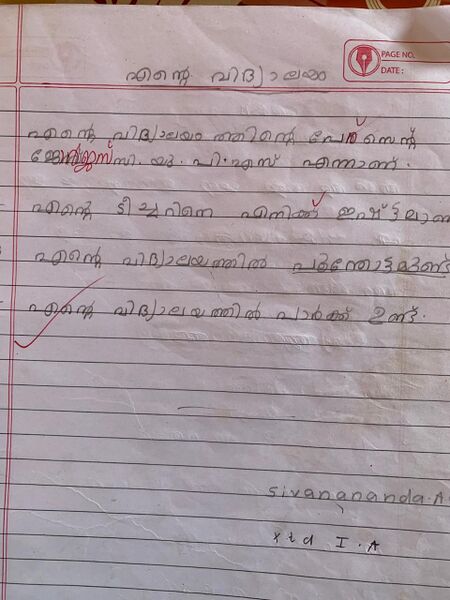 PAGE NO.
DATE :
എന്റെ വിദ്യാലയം
എന്റെ വിദ്യാലയത്തിന്റെ പേര് സെന്റ്
ജോർജസ് സി. യു. പി. എസ് എന്നാണ്.
എന്റെ ടീച്ചറിനെ എനിക്ക് ഇഷ്ടമാണ്
എന്റെ വിദ്യാലയത്തിൽ പൂന്തോട്ടമുണ്ട്
എന്റെ വിദ്യാലയത്തിൽ പാർക്ക് ഉണ്ട്.
sivanananda.A
std I. A